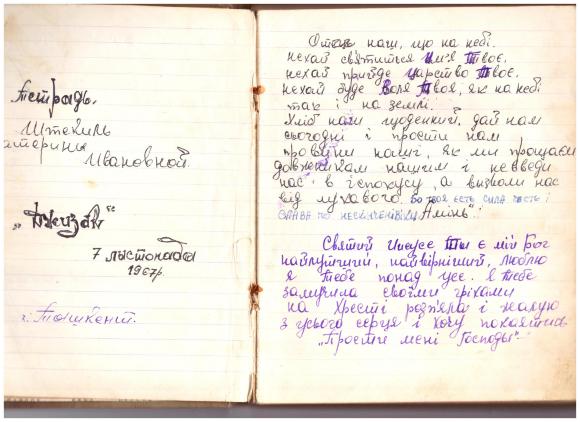 Тетрадь.
Штекиль
атерины
Ивановной.
„Джизак“
7 листопада
1967р.
г. Ташкент.
Отець наш, що на небі.
нехай святится имя Твоє,
нехай прийде царство Твоє,
нехай буде воля Твоя, як на небі
так і на землі.
Хліб наш щоденний, дай нам
сьогодні і прости нам
провини наші, як ми прощаєм
довжникам нашим і не введи
нас в іспокусу, а визволи нас
від лукавого. Бо твоя есть сила честь і
слава по нескінчені віки Амінь“.
Святий Ииусе Ты є мій Бог
найлутший, найвірніший, люблю
я Тебе понад усе. Я Тебе
засмутила своїми гріхами
на Хресті розп'яла і жалую
з усього серця і хочу покаятись
„Прости мені Господы“.